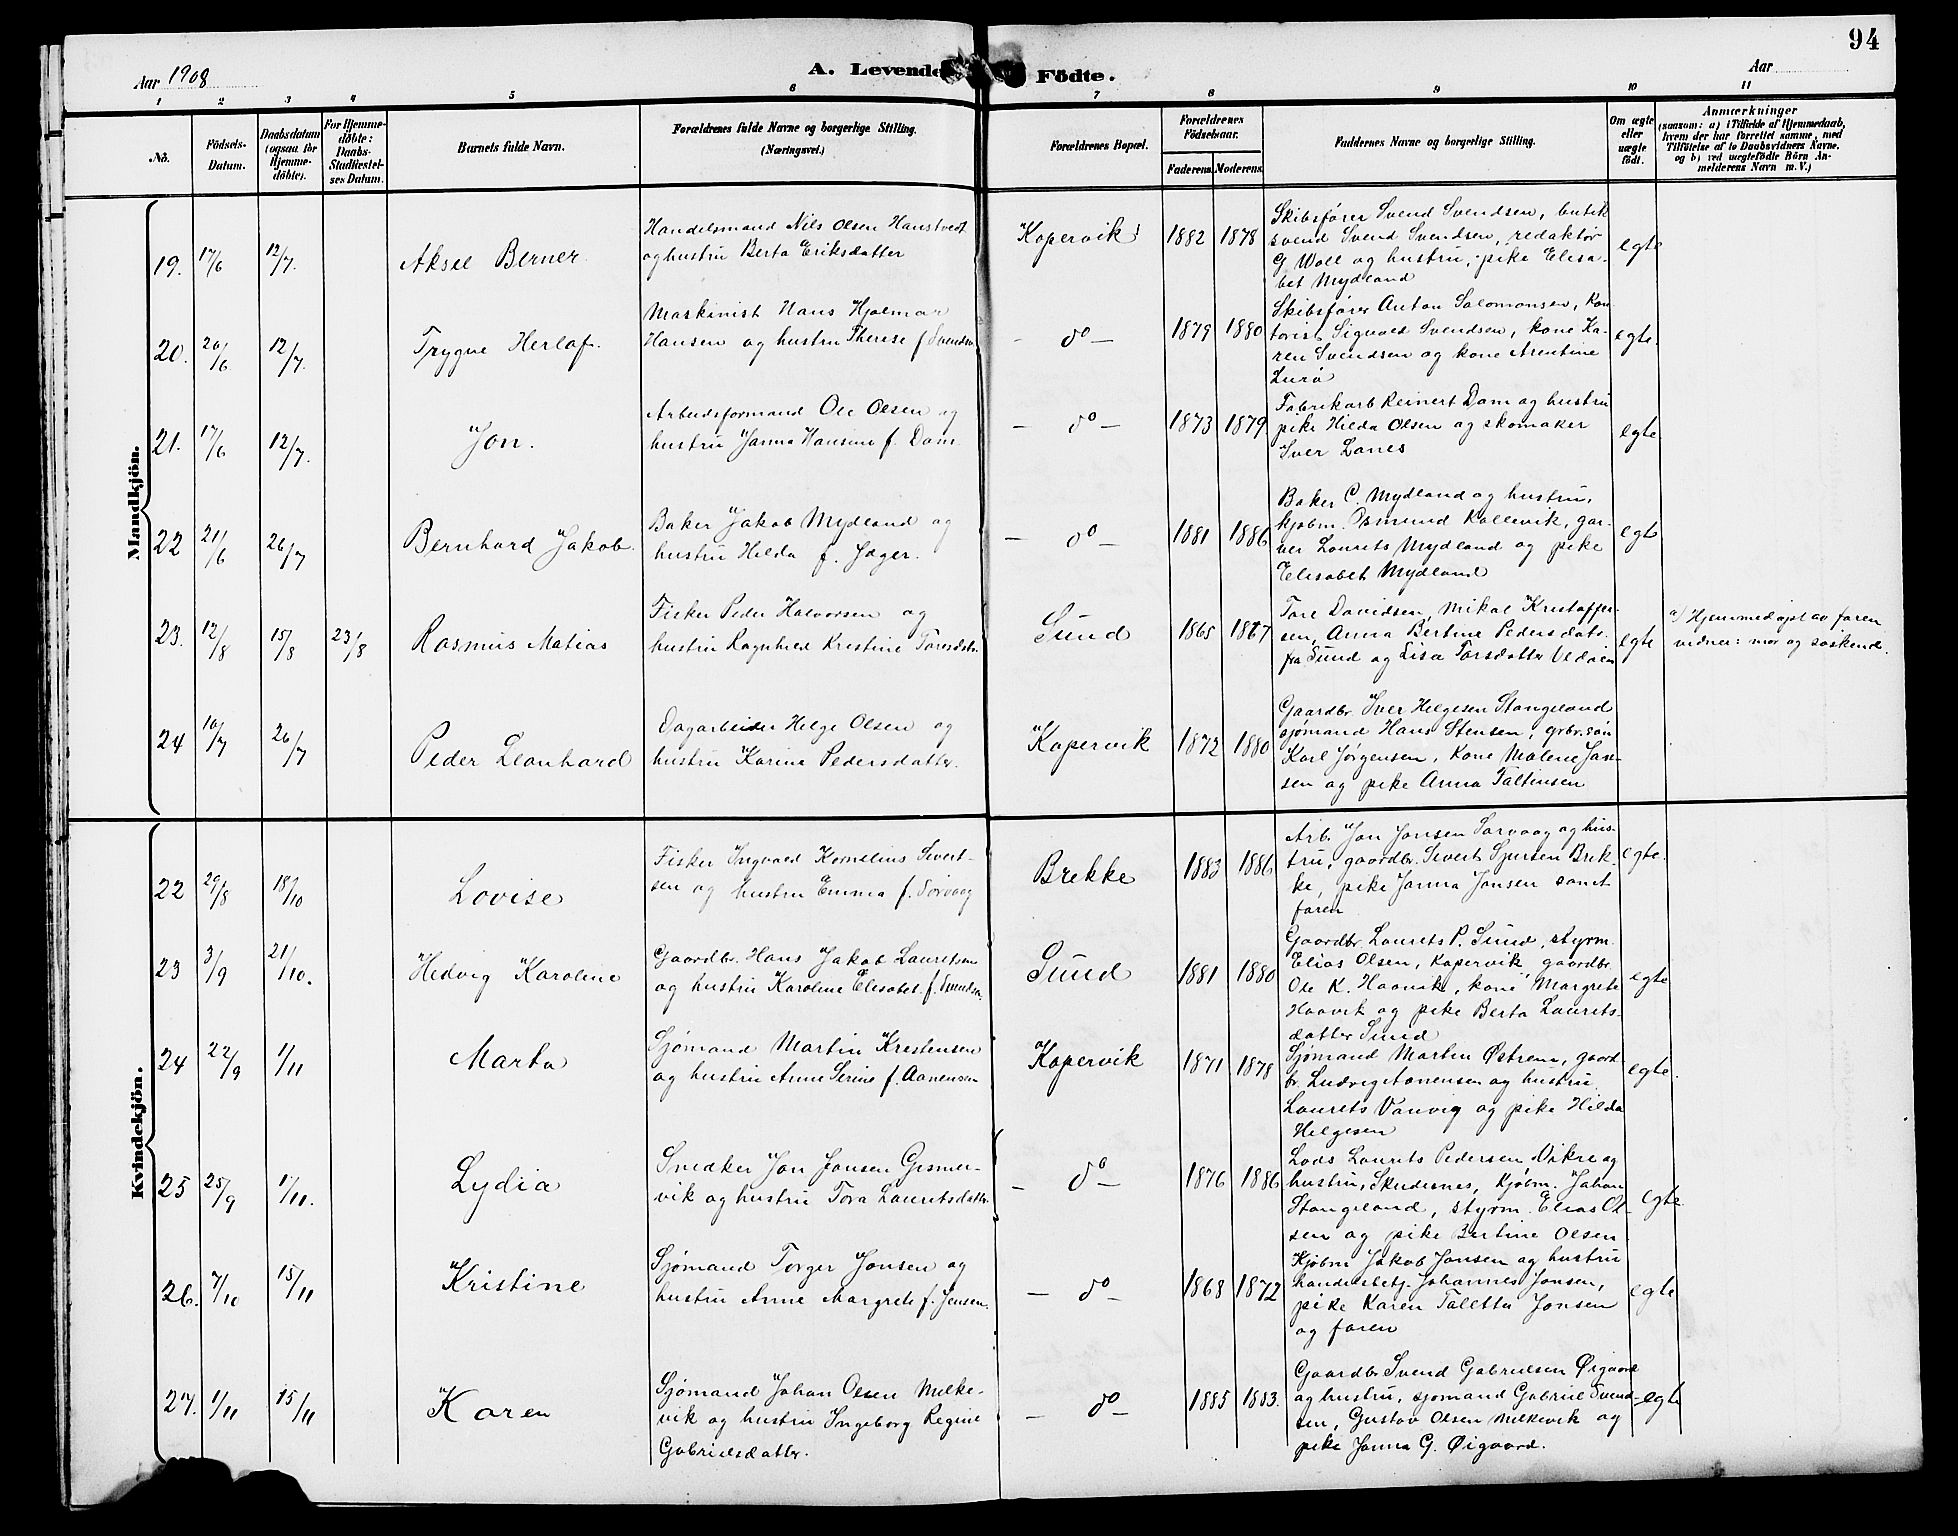 94
Aar 1908
A. Levende Födte.
Aar
1 2 3 4 5 6 7 8 9 10 11
No.
Födsels-Datum.
Daabsdatum (ogsaa for Hjemme-döbte).
For Hjemme-döbte: Daabs-Stadfæstel-ses Datum.
Barnets fulde Navn.
Forældrenes fulde Navne og borgerlige Stilling.
(Næringsvei.)
Forældrenes Bopæl.
Forældrenes Födselsaar.
Faderens. Moderens.
Faddernes Navne og borgerlige Stilling.
Om ægte eller uægte födt.
Anmærkninger
(saasom: a) i Tilfælde af Hjemmedaab, hvem der har forrettet samme, med Tilföielse af to Daabsvidners Navne, og b) ved uægtefödte Börn An-melderens Navn m. V.)
Mandkjön.
19. 17/6 12/7. Aksel Berner
Handelsmand Nils Olsen Hanstvedt
og hustru Berta Eriksdatter
Kopervik 1882 1878
Skibsfører Svend Svendsen, butik
svend Svend Svendsen, redaktør
G Woll og hustru, pike Elisa-
bet Mydland
egte
20. 20/6 12/7. Trygve Herlof.
Maskinist Hans Hjalmar
Hansen og hustru Therese f. Svendsen
— do — 1879 1880
Skibsfører Anton Salomonsen, Kon
torist Sigvald Svendsen, kone Ka-
ren Svendsen og kone Arentine
Lurø
egte.
21. 17/6 12/7. Jon.
Arbeidsformand Ole Olsen og
hustru Janna Hansine f. Dam
— do — 1873 1879
Fabrikarb Reinert Dam og hustru
pike Hilda Olsen og skomaker
Iver Lanes
egte
22 21/6 26/7 Bernhard Jakob.
Baker Jakob Mydland og
hustru Hilda f. Jæger.
— do — 1881 1886
Baker C. Mydland og hustru,
kjøbm. Osmund Kallevik, gar-
ver Laurets Mydland og pike
Elisabet Mydland
egte
23. 12/8 15/8 23/8 Rasmus Matias
Fisker Peder Halvorsen og
hustru Ragnhild Kristine Toresdtr.
Sund 1865 1867
Tore Davidsen, Mikal Kristoffer-
sen, Anna Bertine Pedersdatr.
fra Sund og Lisa Torsdatter Vedøien
egte
a) Hjemmedøpt av faren
vidner: mor og søskend.
24 10/7 26/7 Peder Leonhard
Dagarbeider Helge Olsen og
hustru Karine Pedersdatter.
Kopervik 1872 1880
Gaardbr. Iver Helgesen Stangeland
sjømand Hans Stensen, grbr.søn
Karl Jørgensen, Kone Malene Jan-
sen og pike Anna Faltinsen
Kvindekjön.
22 29/8 18/10 Lovise
Fisker Ingvald Kornelius Sivert-
sen og hustru Emma f. Sørvaag
Brekke 1883 1886
Arb. Jon Jonsen Sørvaag og hus-
tru, gaardbr. Sivert Sjursen Brek-
ke, pike Janna Jonsen samt
faren
egte.
23 3/9 21/10. Hedvig Karoline
Gaardbr. Hans Jakob Lauretsen
og hustru Karoline Elisabet f. Svendsen.
Sund 1881 1880
Gaardbr. Laurets P. Sund, styrm.
Elias Olsen, Kopervik, gaardbr.
Ole K. Haavik, kone Margrete
Haavik og pike Berta Laurets-
datter Sund
egte
24 22/9 1/11 Marta
Sjømand Martin Kristensen
og hustru Anne Serine f. Aanensen
Kopervik 1871 1878
Sjømand Martin Østrem, gaard
br. Ludvig Aanensen og hustru
Laurets Vanvig og pike Hilda
Helgesen
egte.
25 25/9 1/11. Lydia
Snedker Jon Jonsen Gismer-
vik og hustru Tora Lauritsdatter
— do — 1876 1886
Lods Laurets Pedersen Vikre og
hustru, Skudesnes, Kjøbm. Johan
Stangeland, styrm. Elias Ol-
sen og pike Bertine Olsen
egte
26. 7/10 15/11 Kristine
Sjømand Torger Jonsen og
hustru Anne Margrete f. Jensen.
— do — 1868 1872
Kjøbm Jakob Jonsen og hustru
handelsbetj. Johannes Jonsen,
pike Karen Taletta Jonsen
og faren
egte
27. 1/11 15/11 Karen
Sjømand Johan Olsen Melke-
vik og hustru Ingeborg Regine
Gabrielsdatter.
— do — 1885 1883.
Gaardbr Svend Gabrielsen Øigaard
og hustru, sjømand Gabriel Svend-
sen, Gustav Olsen Melkevik og
pike Janna G. Øigaard.
egte